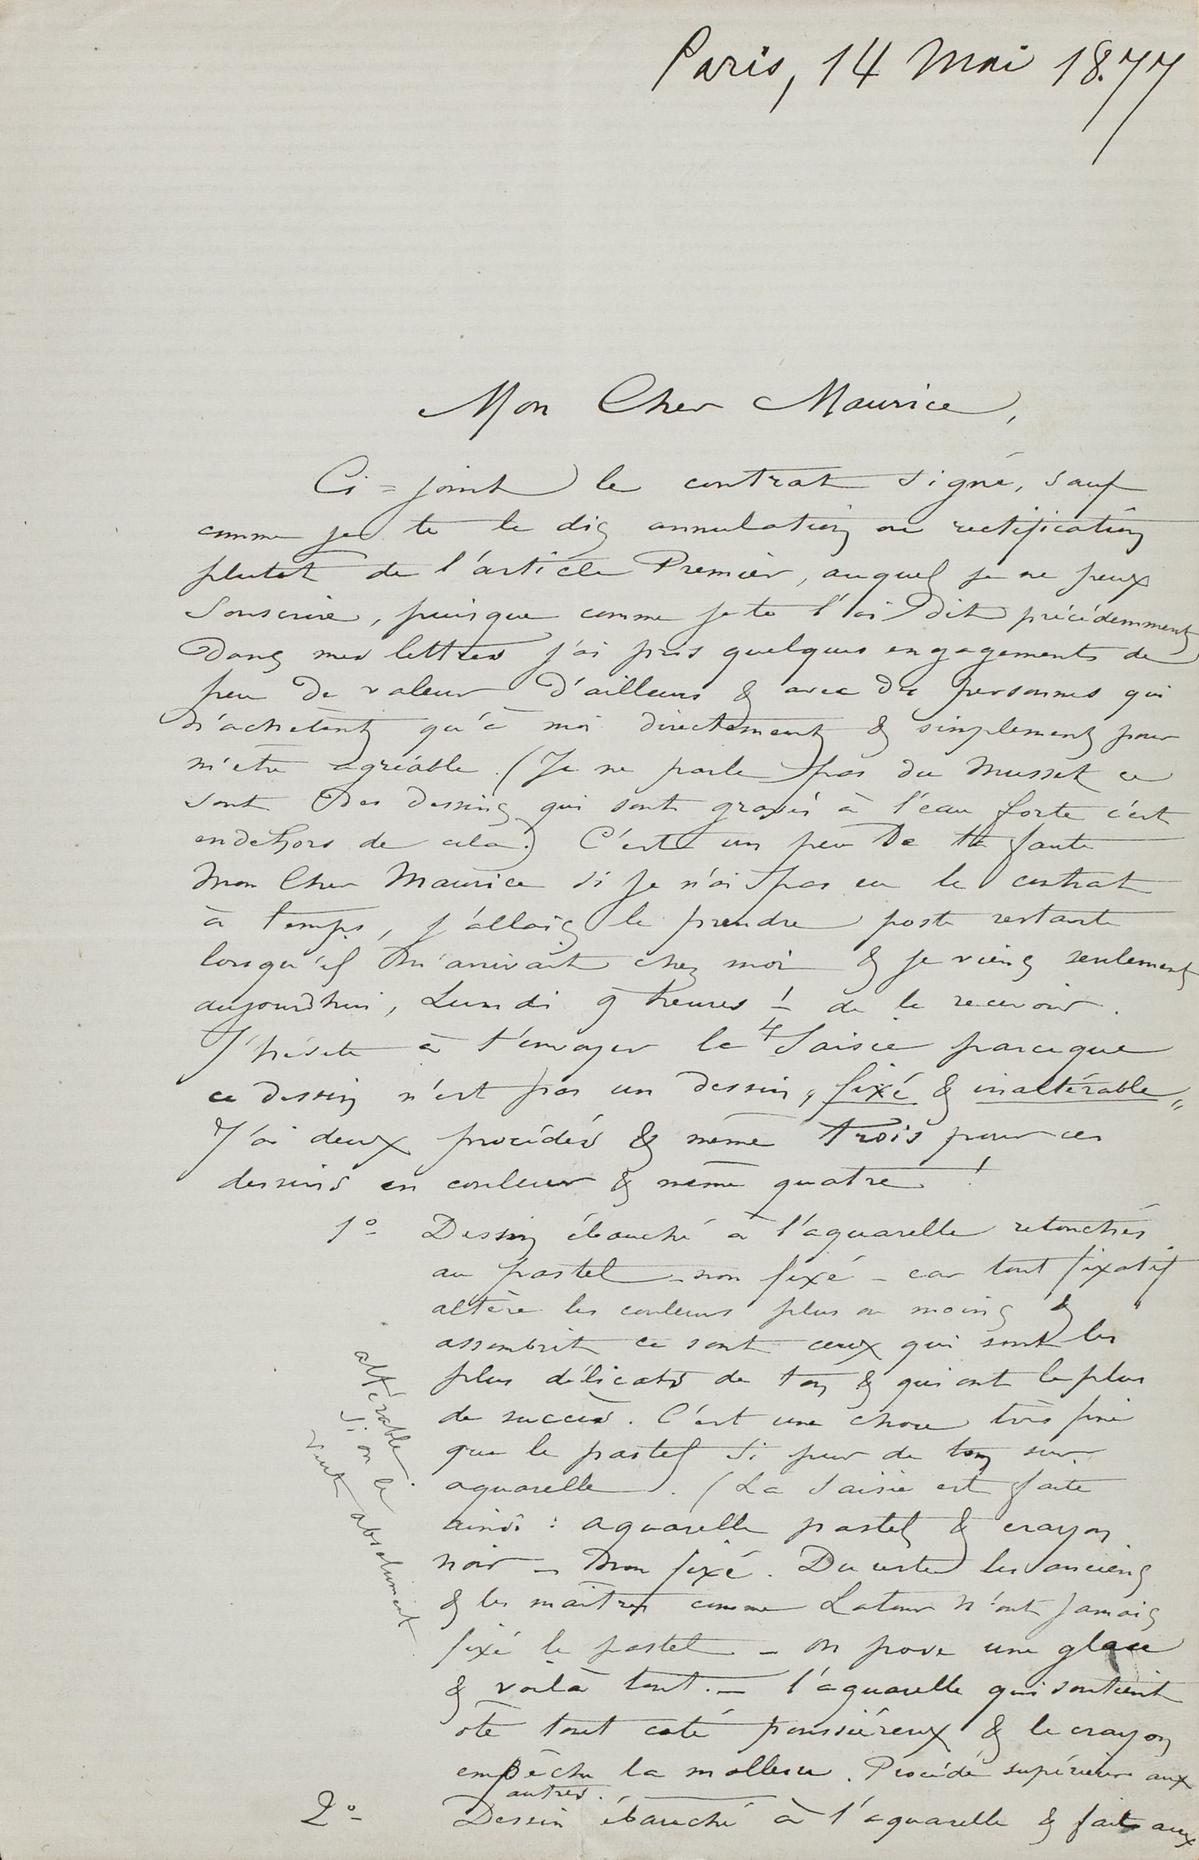 Paris, 14 Mai 1877
Mon Cher Maurice,
Ci-joint le contrat signé, sauf
comme je te le dis annulation ou rectification
plutot de l'article Premier, auquel je ne peux
souscrire, puisque comme je te l'ai dit précédemment
Dans mes lettres j'ai pris quelques engagements de
peu de valeur d'ailleurs & avec des personnes qui
n'achètent qu'à moi directement & simplement pour
m'etre agréable. (Je ne parle pas du Musset ce
sont des dessins qui sont gravés à l'eau forte c'est
endehors de cela.) C'est un peu de ta faute
Mon Cher Maurice si je n'ai pas eu le contrat
à temps, j'allais le prendre poste restante
lorsqu'il m'arrivait chez moi & je viens seulement
aujourd'hui, Lundi 9 heures ! de le recevoir.
J'hésite à t'envoyer la Saisie parceque
ce dessin n'est pas un dessin „fixé & inaltérable„
J'ai deux procédés & même trois pour ces
dessins en couleur & même quatre !
1° Dessin ébauché à l'aquarelle retouchés
au pastel - non fixé - car tout fixatif
altère les couleurs plus ou moins &
assombrit ce sont ceux qui sont les
plus délicats de ton & qui ont le plus
de succès. C'est une chose très fine
que le pastel si pur de ton sur
aquarelle. (La Saisie est faite
ainsi : aquarelle pastel & crayon
noir - Non fixé. Du reste les anciens
& les maitres comme Latour n'ont jamais
fixé le pastel - on pose une glace
& voilà tout. - l'aquarelle qui soutient
ôte tout coté poussiéreux & le crayon
empêche la mollesse. Procédé supérieur aux
autres.
altérable
si on le
veut absolument
2° Dessin ébauché à l'aquarelle & fait aux